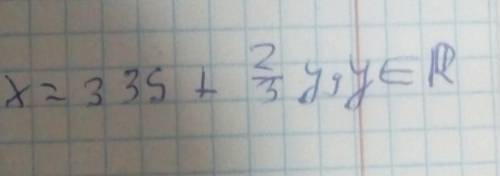 x = 335 + 2/3 y, y ∈ ℝ